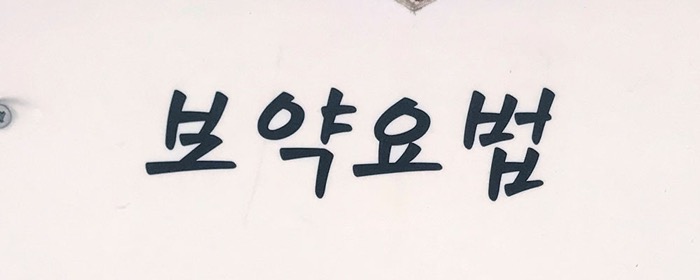 보약요법